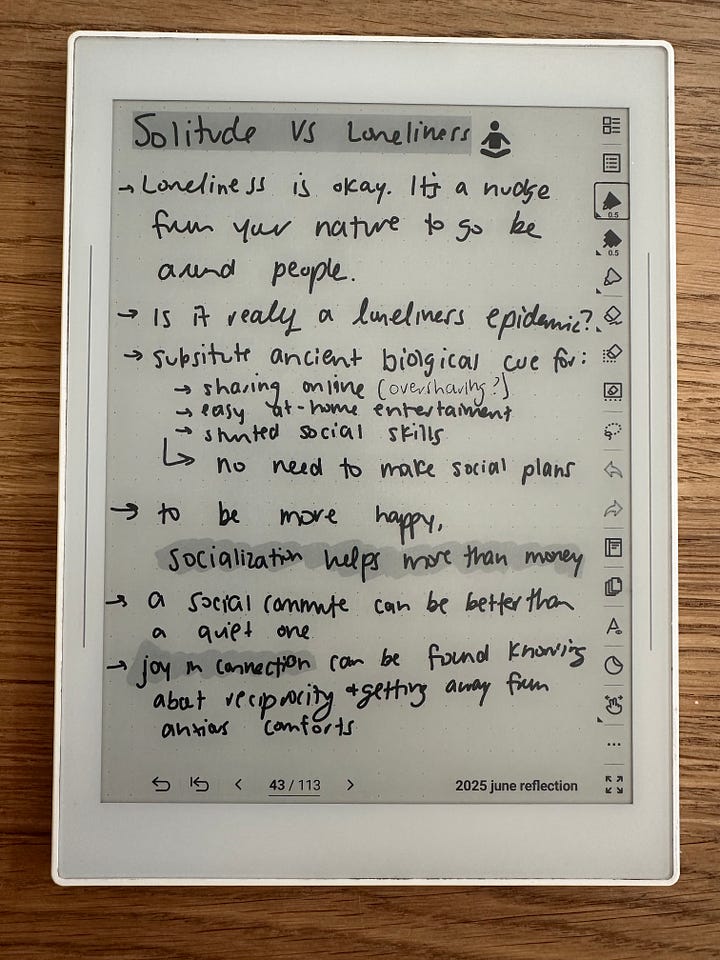 Solitude vs Loneliness
→ Loneliness is okay. It's a nudge
from your nature to go be
around people.
→ Is it really a loneliness epidemic?
→ subsitute ancient biolgical cue for:
→ sharing online (oversharing?)
→ easy at-home entertaiment
→ stunted social skills
↳ no need to make social plans
→ to be more happy,
socialization helps more than money
→ a social commute can be better than
a quiet one
→ joy in connection can be found knowing
about reciprocity + getting away from
anxious comforts
0.5
0.5
43 / 113
2025 june reflection